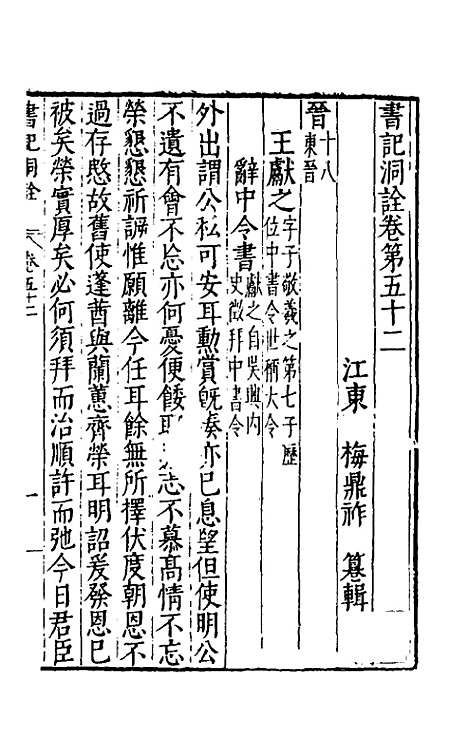 書記洞詮卷第五十二
江東 梅鼎祚 纂輯
晉十八東晉
王獻之字子敬羲之第七子歷位中書令世稱大令
辭中令書獻之自吳興內史徵拜中書令
外出謂公私可安耳勳賞旣湊亦已息望但使明公
不遺有會不忘亦何憂便餧耳 志不慕高情不忘
榮懇懇祈謝惟願離今任耳餘無所擇伏度朝恩不
過存愍故舊使蓬蒿與蘭蕙齊榮耳明詔爰發恩已
被矣榮實厚矣必何須拜而治順許而弛今日君臣
書記洞詮 卷五十二 一